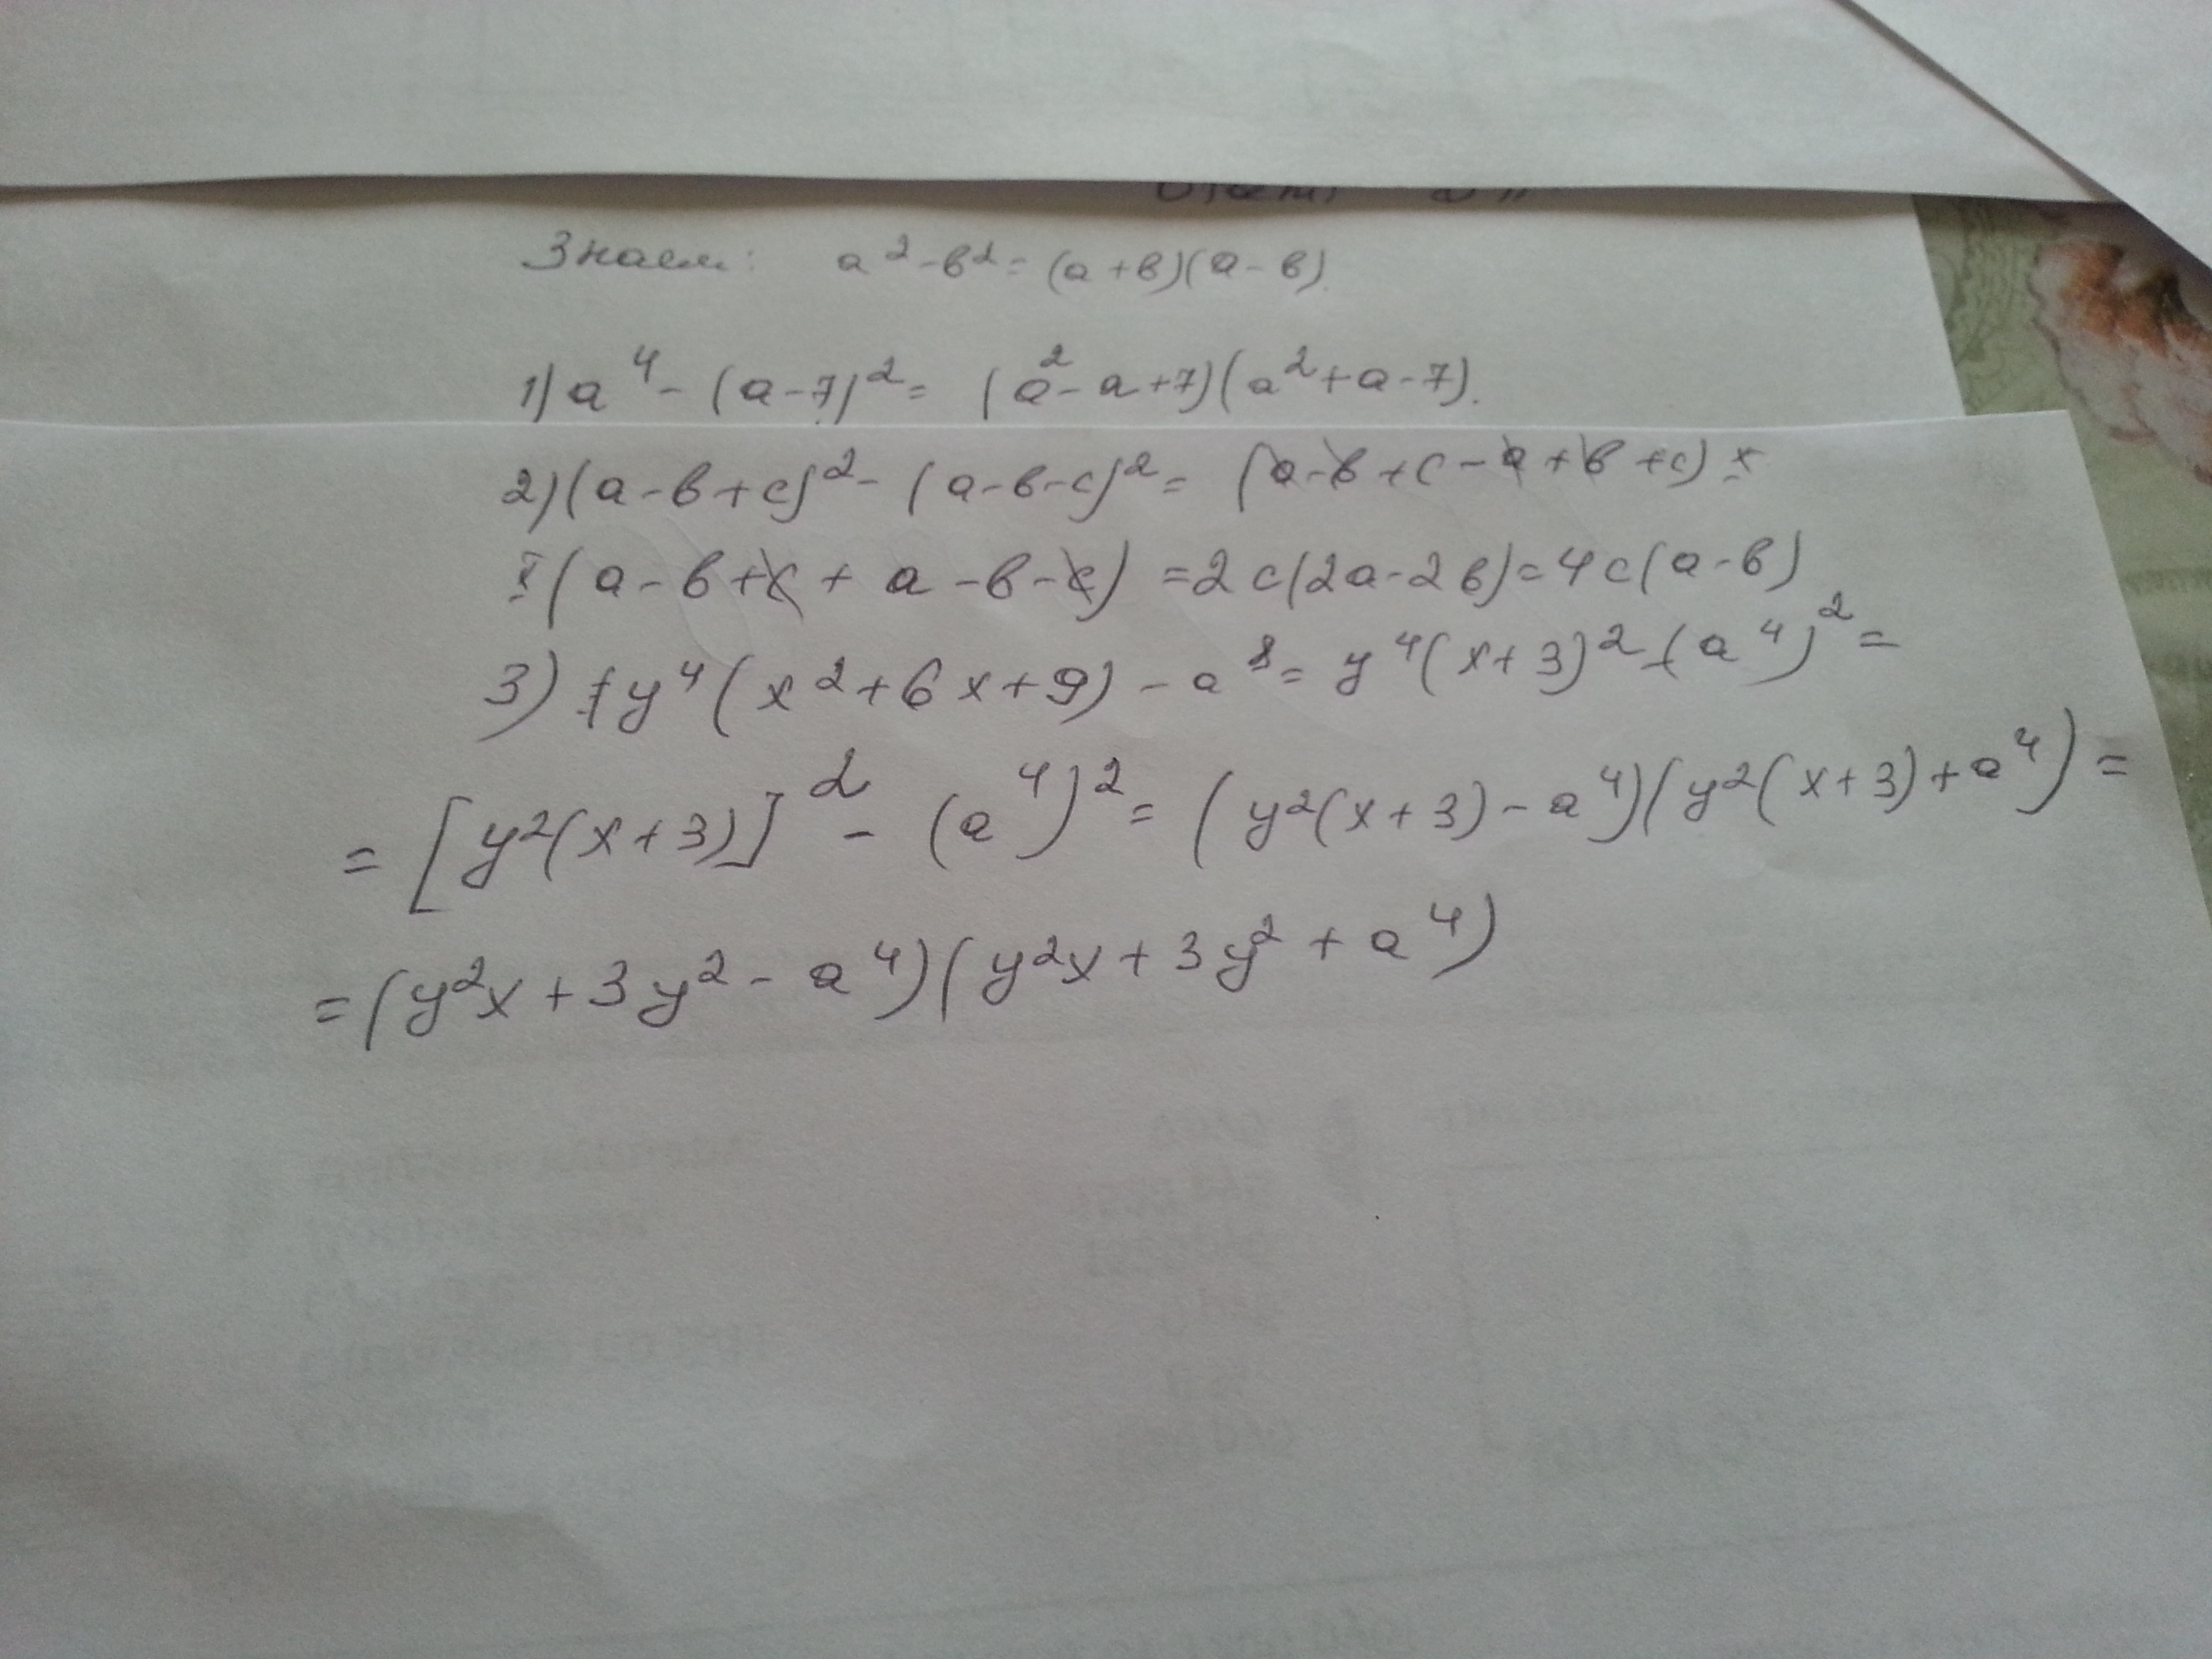 Знаем: a² - в² = (a + в)(a - в).
1) a⁴ - (a - 7)² = (a² - a + 7)(a² + a - 7).
2) (a - в + c)² - (a - в - c)² = (a - в + c - a + в + c) ×
× (a - в + c + a - в - c) = 2c(2a - 2в) = 4c(a - в)
3) y⁴(x² + 6x + 9) - a⁸ = y⁴(x + 3)² - (a⁴)² =
= [y²(x + 3)]² - (a⁴)² = (y²(x + 3) - a⁴)(y²(x + 3) + a⁴) =
= (y²x + 3y² - a⁴)(y²x + 3y² + a⁴)